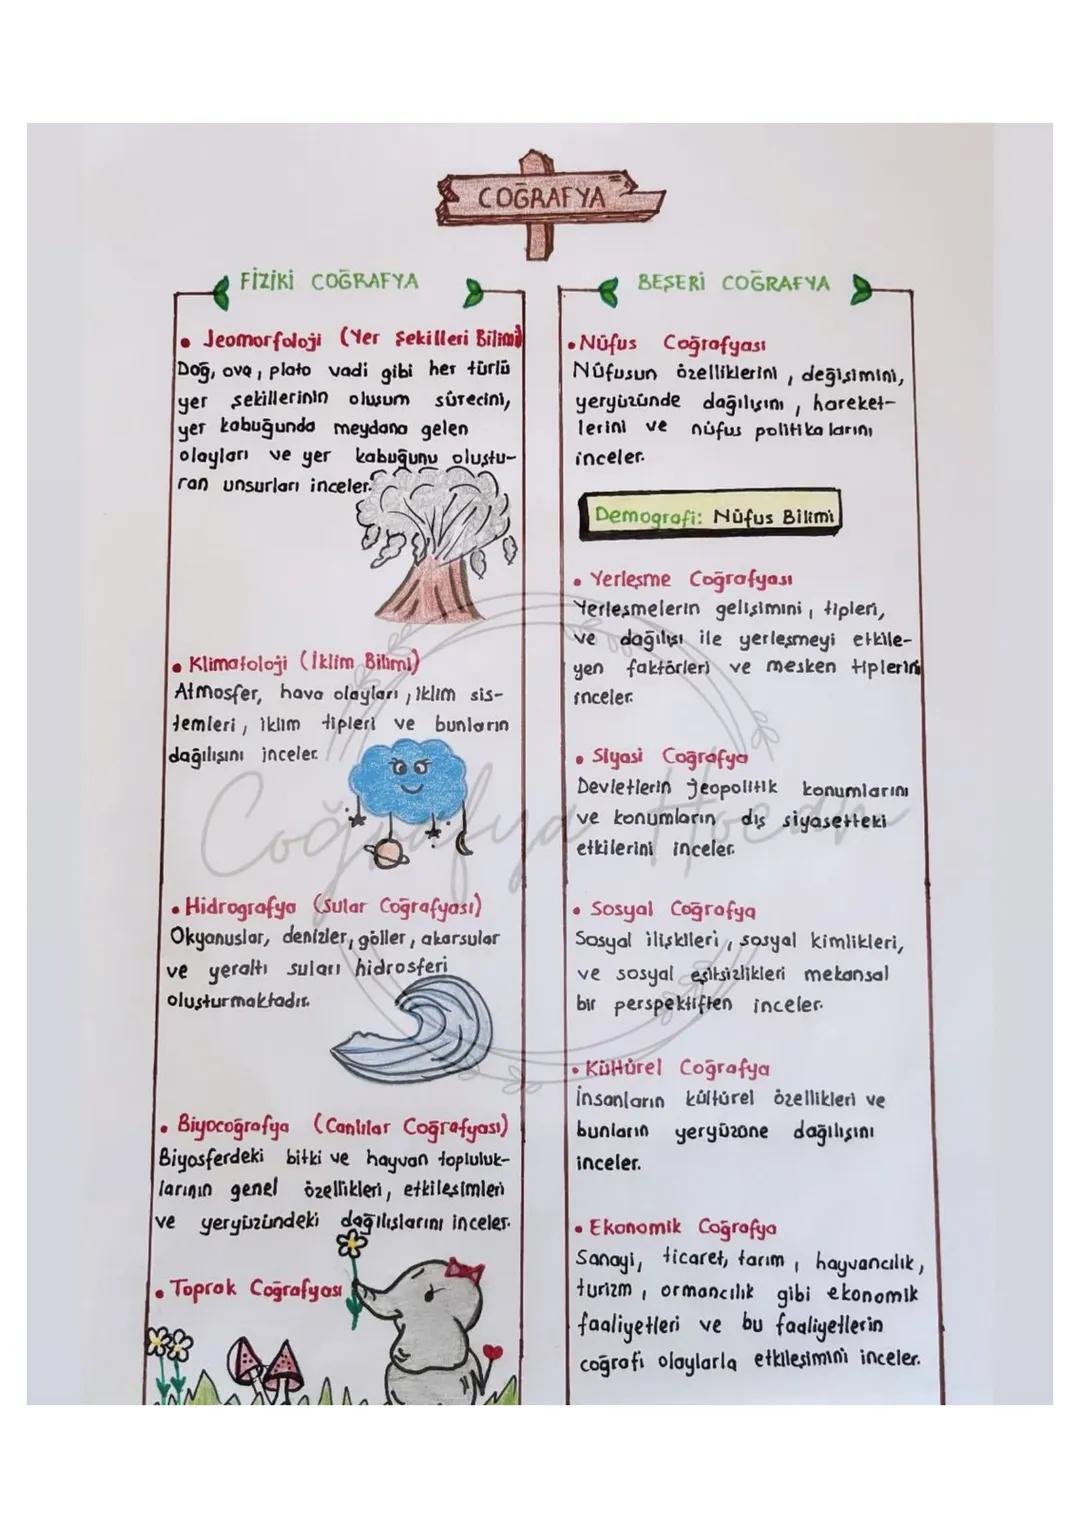 COĞRAFYA
FİZİKİ COĞRAFYA
• Jeomorfoloji (Yer Şekilleri Bilimi)
Doğ, ova, plato vadi gibi her türlü
yer şekillerinin oluşum sürecini,
yer kabuğunda meydana gelen
olayları ve yer kabuğunu oluştu-
ran unsurları inceler.
• Klimatoloji (İklim Bilimi)
Atmosfer, hava olayları, iklim sis-
temleri, iklim tipleri ve bunların
dağılışını inceler.
• Hidrografya (Sular Coğrafyası)
Okyanuslar, denizler, göller, akarsular
ve yeraltı suları hidrosferi
oluşturmaktadır.
• Biyocoğrafya (Canlılar Coğrafyası)
Biyosferdeki bitki ve hayvan topluluk-
larının genel özellikleri, etkileşimleri
ve yeryüzündeki dağılışlarını inceler.
• Toprak Coğrafyası
BEŞERİ COĞRAFYA
• Nüfus Coğrafyası
Nüfusun özelliklerini, değişimini,
yeryüzünde dağılışını, hareket-
lerini ve nüfus politikalarını
inceler.
Demografi: Nüfus Bilimi
• Yerleşme Coğrafyası
Yerleşmelerin gelişimini, tipleri,
ve dağılışı ile yerleşmeyi etkile-
yen faktörleri ve mesken tiplerini
inceler.
• Siyasi Coğrafya
Devletlerin jeopolitik konumlarını
ve konumların dış siyasetteki
etkilerini inceler.
• Sosyal Coğrafya
Sosyal ilişkileri, sosyal kimlikleri,
ve sosyal eşitsizlikleri mekansal
bir perspektiften inceler.
• Kültürel Coğrafya
İnsanların kültürel özellikleri ve
bunların yeryüzüne dağılışını
inceler.
• Ekonomik Coğrafya
Sanayi, ticaret, tarım, hayvancılık,
turizm, ormancılık gibi ekonomik
faaliyetleri ve bu faaliyetlerin
coğrafi olaylarla etkileşimini inceler.
Coğrafya Hocan